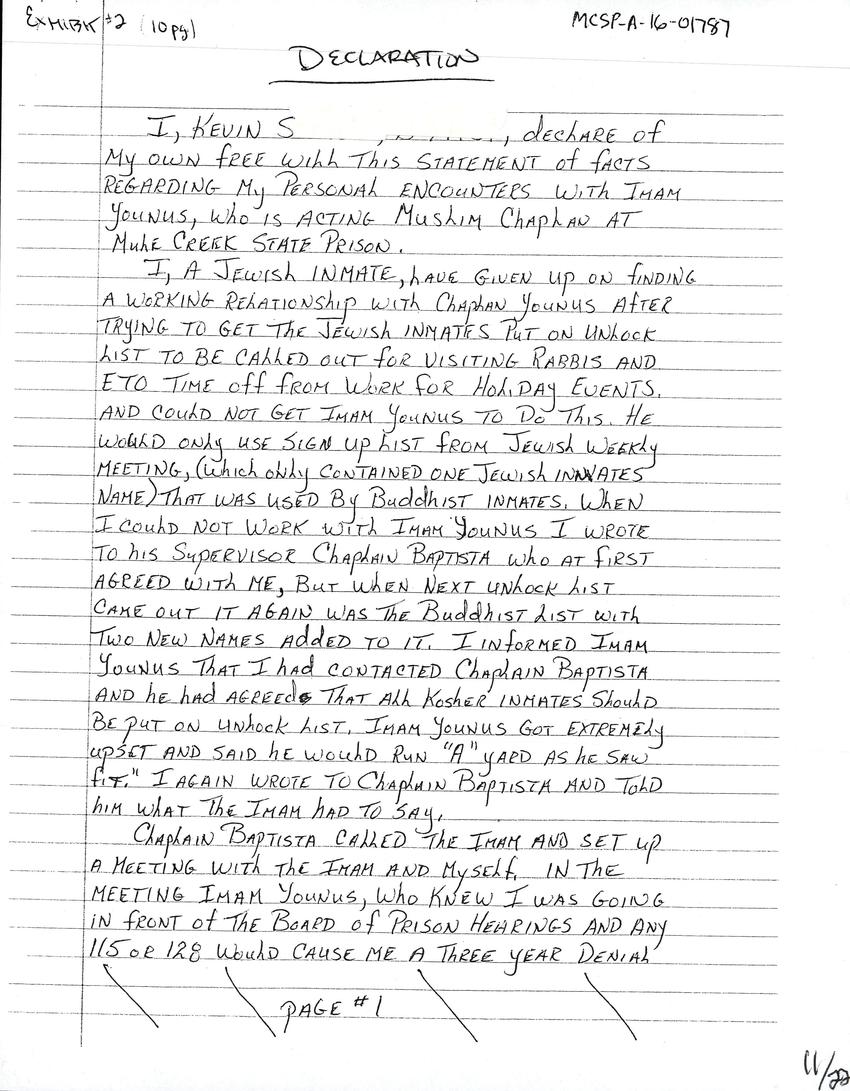 EXHIBIT #2 (10 pg)
MCSP-A-16-01787
DECLARATION
I, KEVIN S , dechare of
My own free will This STATEMENT of fACTS
REGARDING My PERSONAL ENCOUNTERS WITH IMAM
YOUNUS, Who is ACTING Muslim Chaplan AT
Mule CREEK STATE PRISON.
I, A JEWISH INMATE, have GIVEN up on fiNDING
A WORKING RElATIONShip WITH Chaplan YOUNUS AfTER
TRYING TO GET The JEWISH INMATES PUT ON UNlOCK
LIST TO BE CALLED OUT for VISITING RABBIS AND
ETO TIME off fROM WORK fOR HOLIDAY EVENTS,
AND COULD NOT GET IMAM YOUNUS TO DO This. HE
WOULD ONLY USE SIGN UP LIST fROM JEWISH WEEKLY
MEETING, (Which only CONTAINED ONE JEWISH INMATES
NAME) THAT WAS USED By Buddhist INMATES. WHEN
I COULD NOT WORK WITH IMAM YOUNUS I WROTE
TO his SUPERVISOR Chaplain BAPTISTA who AT fiRST
AGREED WITH ME, BUT WHEN NEXT UNlOCK LIST
CAME OUT IT AGAIN WAS The Buddhist LIST WITH
TWO NEW NAMES ADDED TO IT. I INfORMED IMAM
YOUNUS THAT I had CONTACTED Chaplain BAPTISTA
AND he had AGREED THAT All Kosher INMATES Should
BE PUT ON UNlOCK LIST. IMAM YOUNUS GOT EXTREMELy
upSET AND SAID he WOULD RUN "A" YARD AS he SAW
fiT." I AGAIN WROTE TO Chaplain BAPTISTA AND TOLD
him WHAT The IMAM hAD TO SAY.
Chaplain BAPTISTA CALLED The IMAM AND SET up
A MEETING WITH The IMAM AND Myself. IN The
MEETING IMAM YOUNUS, Who KNEW I WAS GOING
IN fRONT of The BOARD of PRISON HEARINGS AND ANY
115 OR 128 WOULD CAUSE ME A ThREE YEAR DENIAL
PAGE #1
11/22